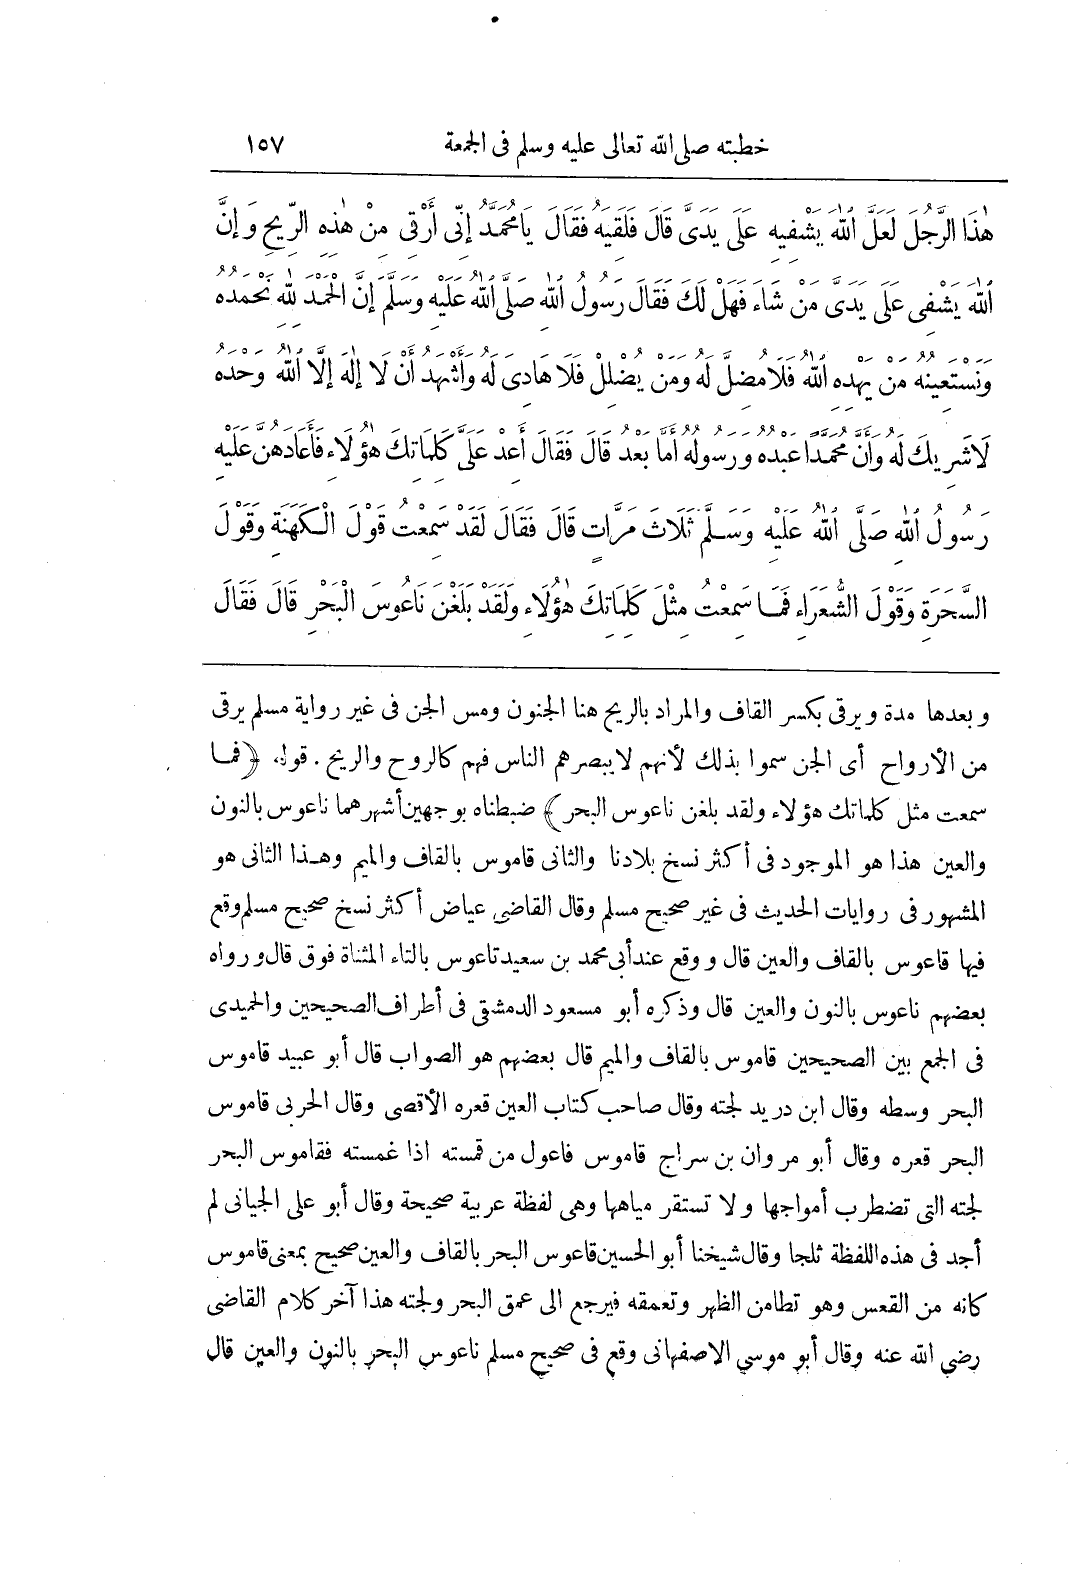 خطبته صلى الله تعالى عليه وسلم فى الجمعة ١٥٧
هٰذَا الرَّجُلَ لَعَلَّ اللّٰهَ يَشْفِيهِ عَلَى يَدَىَّ قَالَ فَلَقِيَهُ فَقَالَ يَا مُحَمَّدُ إِنِّى أَرْقِى مِنْ هٰذِهِ الرِّيحِ وَإِنَّ
اللّٰهَ يَشْفِى عَلَى يَدَىَّ مَنْ شَاءَ فَهَلْ لَكَ فَقَالَ رَسُولُ اللّٰهِ صَلَّى اللّٰهُ عَلَيْهِ وَسَلَّمَ إِنَّ الْحَمْدَ لِلّٰهِ نَحْمَدُهُ
وَنَسْتَعِينُهُ مَنْ يَهْدِهِ اللّٰهُ فَلَا مُضِلَّ لَهُ وَمَنْ يُضْلِلْ فَلَا هَادِىَ لَهُ وَأَشْهَدُ أَنْ لَا إِلٰهَ إِلَّا اللّٰهُ وَحْدَهُ
لَا شَرِيكَ لَهُ وَأَنَّ مُحَمَّدًا عَبْدُهُ وَرَسُولُهُ أَمَّا بَعْدُ قَالَ فَقَالَ أَعِدْ عَلَىَّ كَلِمَاتِكَ هٰؤُلَاءِ فَأَعَادَهُنَّ عَلَيْهِ
رَسُولُ اللّٰهِ صَلَّى اللّٰهُ عَلَيْهِ وَسَلَّمَ ثَلَاثَ مَرَّاتٍ قَالَ فَقَالَ لَقَدْ سَمِعْتُ قَوْلَ الْكَهَنَةِ وَقَوْلَ
السَّحَرَةِ وَقَوْلَ الشُّعَرَاءِ فَمَا سَمِعْتُ مِثْلَ كَلِمَاتِكَ هٰؤُلَاءِ وَلَقَدْ بَلَغْنَ نَاعُوسَ الْبَحْرِ قَالَ فَقَالَ
وبعدها مدة ويرقى بكسر القاف والمراد بالريح هنا الجنون ومس الجن فى غير رواية مسلم يرقى
من الأرواح أى الجن سموا بذلك لأنهم لا يبصرهم الناس فهم كالروح والريح . قوله ﴿فما
سمعت مثل كلماتك هؤلاء ولقد بلغن ناعوس البحر﴾ ضبطناه بوجهين أشهرهما ناعوس بالنون
والعين هذا هو الموجود فى أكثر نسخ بلادنا والثانى قاموس بالقاف والميم وهذا الثانى هو
المشهور فى روايات الحديث فى غير صحيح مسلم وقال القاضى عياض أكثر نسخ صحيح مسلم وقع
فيها قاعوس بالقاف والعين قال ووقع عند أبى محمد بن سعيد تاعوس بالتاء المثناة فوق قال ورواه
بعضهم ناعوس بالنون والعين قال وذكره أبو مسعود الدمشقى فى أطراف الصحيحين والحميدى
فى الجمع بين الصحيحين قاموس بالقاف والميم قال بعضهم هو الصواب قال أبو عبيد قاموس
البحر وسطه وقال ابن دريد لجته وقال صاحب كتاب العين قعره الأقصى وقال الحربى قاموس
البحر قعره وقال أبو مروان بن سراج قاموس فاعول من قمسته اذا غمسته فقاموس البحر
لجته التى تضطرب أمواجها ولا تستقر مياهها وهى لفظة عربية صحيحة وقال أبو على الجيانى لم
أجد فى هذه اللفظة ثلجا وقال شيخنا أبو الحسين قاعوس البحر بالقاف والعين صحيح بمعنى قاموس
كانه من القعس وهو تطامن الظهر وتعمقه فيرجع الى عمق البحر ولجته هذا آخر كلام القاضى
رضى الله عنه وقال أبو موسى الاصفهانى وقع فى صحيح مسلم ناعوس البحر بالنون والعين قال